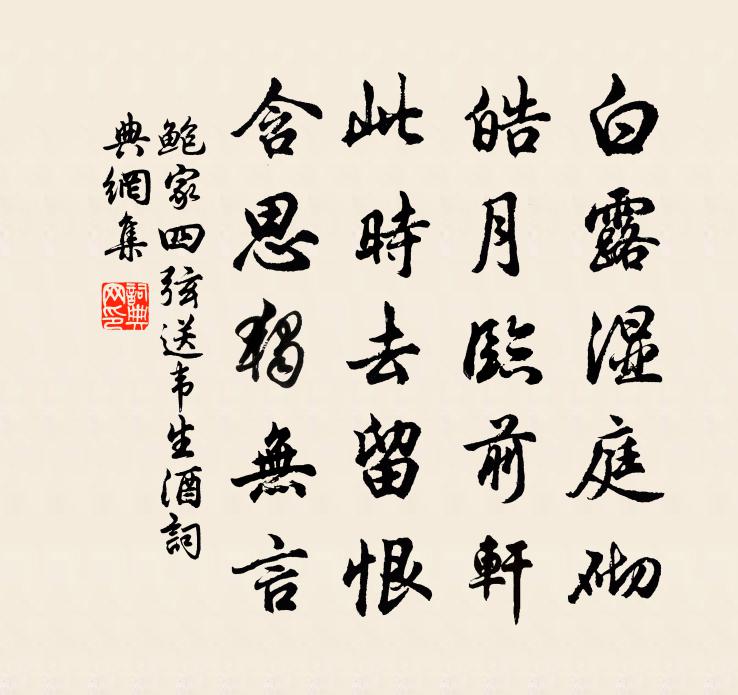 白露湿庭砌
皓月臨前軒
此時去留恨
含思獨無言
鲍家四弦送韦生酒詞
典網集
詞典網印